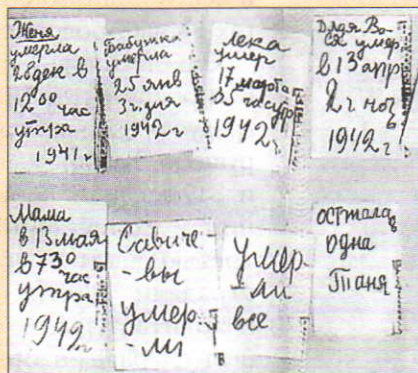 Женя
умерла
28 дек в
12 00 час
утра
1941 г
Бабушка
умерла
25 янв
3 ч. дня
1942 г
Лека
умер
17 марта
в 5 час утр
1942 г
Дядя Ва-
ся умер
в 13 апр
2 ч ноч
1942 г
Мама
в 13 мая
в 7 30
час
утра
1942 г
Савиче-
-вы
умер
-ли
умер
-ли
все
осталась
одна
Таня